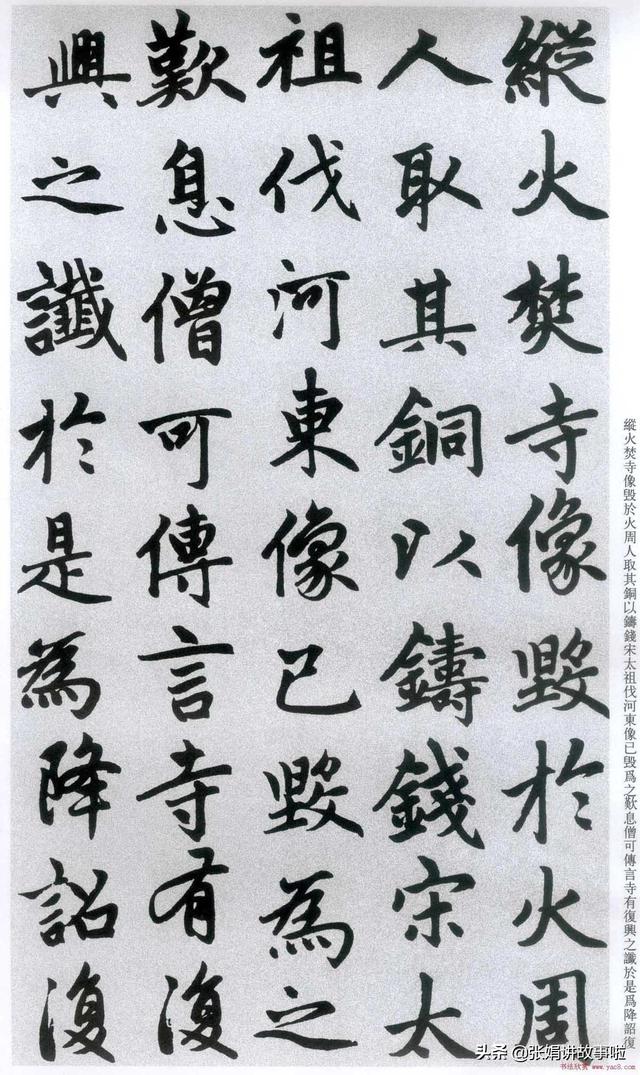 縱火焚寺像毀於火周
人取其銅以鑄錢宋太
祖伐河東像已毀為之
歎息僧可傳言寺有復
興之讖於是為降詔復
縱火焚寺像毀於火周人取其銅以鑄錢宋太祖伐河東像已毀爲之歎息僧可傳言寺有復興之讖於是爲降詔復
头条 @张娟讲故事啦
书法欣赏 www.yac8.com